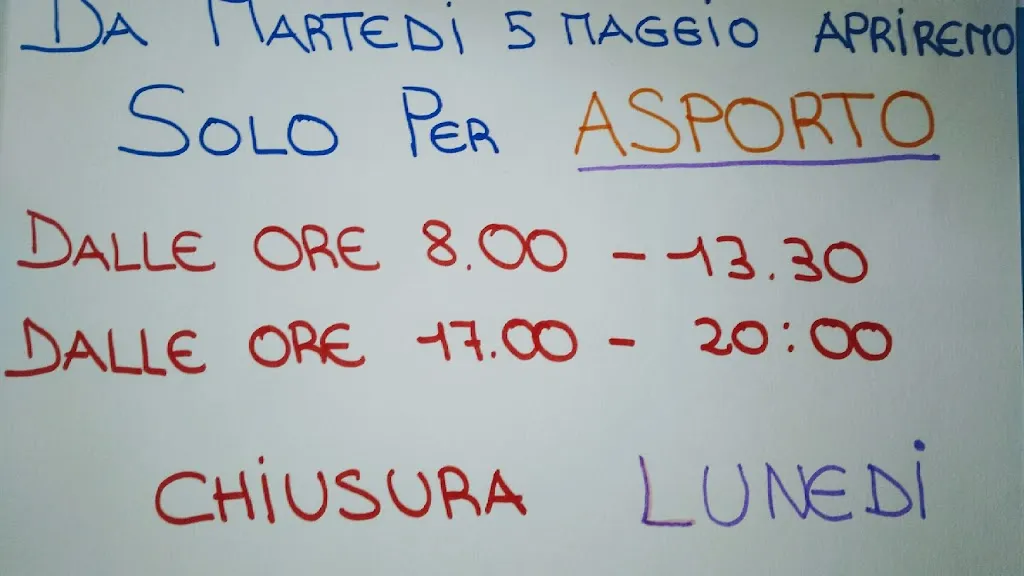 DA MARTEDI 5 MAGGIO APRIREMO
SOLO PER ASPORTO
DALLE ORE 8.00 - 13.30
DALLE ORE 17.00 - 20:00
CHIUSURA LUNEDI